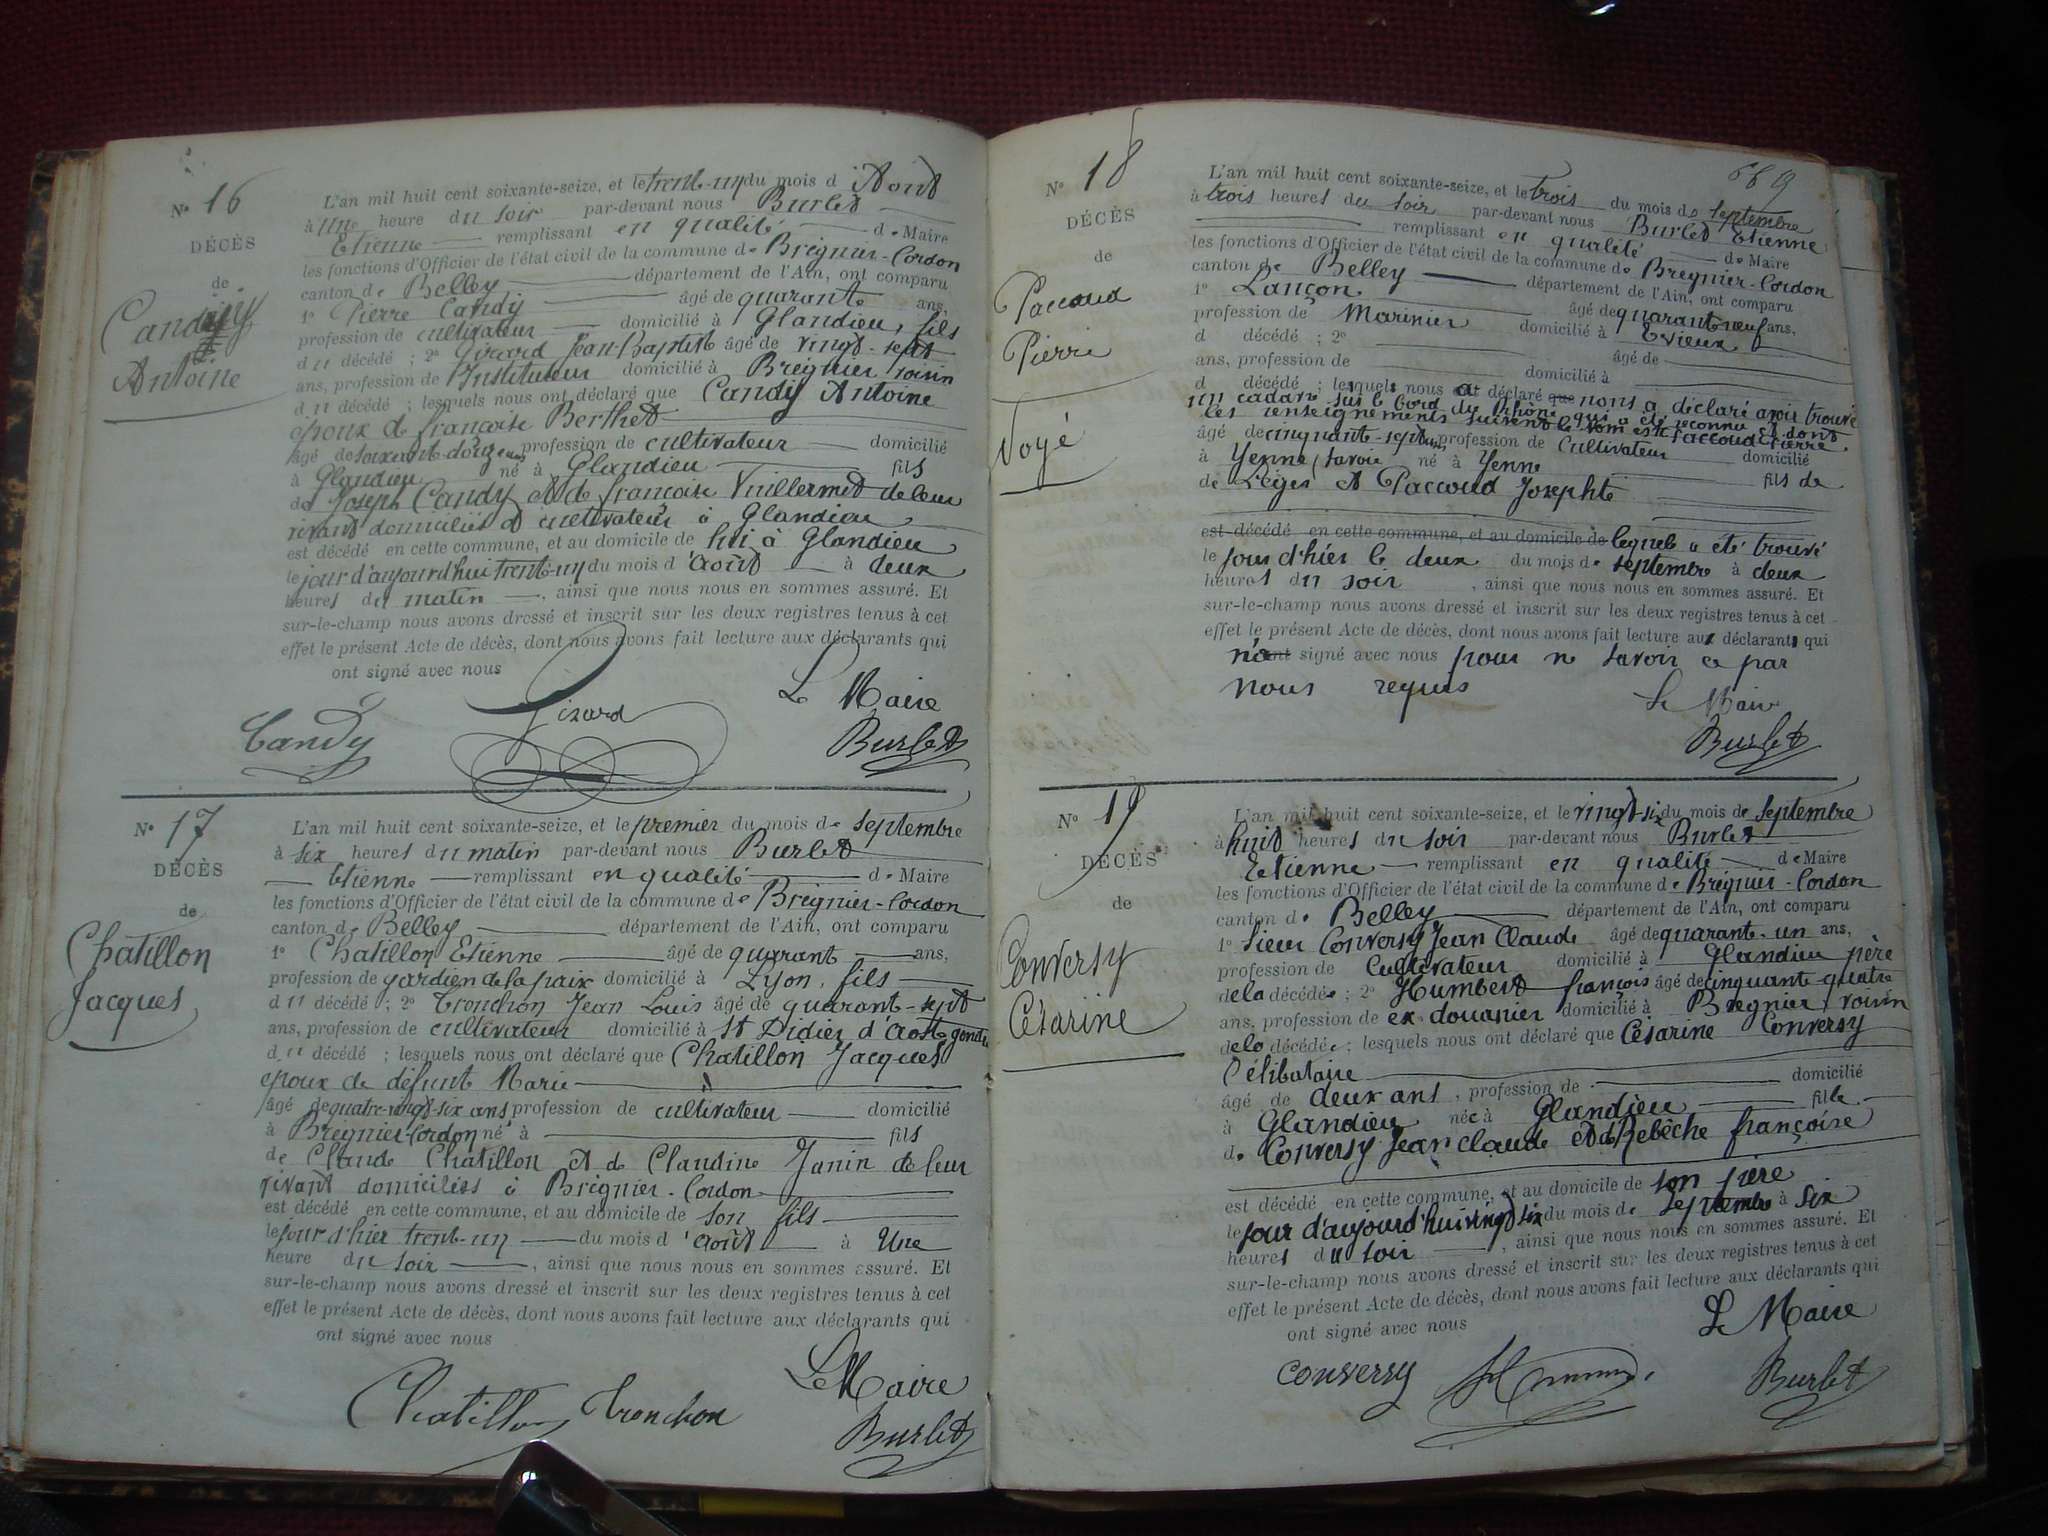 N° 16
DÉCÈS
de
Candy
Antoine
L'an mil huit cent soixante-seize, et le trent-un du mois d'Aout
à une heure du soir par-devant nous Burlet
Etienne remplissant en qualité de Maire
les fonctions d'Officier de l'état civil de la commune de Brégnier-Cordon
canton de Belley département de l'Ain, ont comparu
1° Pierre Candy âgé de quarante ans,
profession de cultivateur domicilié à Glandieu, fils
du décédé ; 2° Girard Jean-Baptiste âgé de vingt-sept
ans, profession de Instituteur domicilié à Brégnier voisin
du décédé ; lesquels nous ont déclaré que Candy Antoine
époux de françoise Berthet
âgé de soixant-doize ans profession de cultivateur domicilié
à Glandieu né à Glandieu fils
de Joseph Candy et de françoise Vuillermet de leur
vivant domiciliés et cultivateur à Glandieu
est décédé en cette commune, et au domicile de lui à Glandieu
le jour d'aujourd'hui trent-un du mois d'août à deux
heures du matin, ainsi que nous nous en sommes assuré. Et
sur-le-champ nous avons dressé et inscrit sur les deux registres tenus à cet
effet le présent Acte de décès, dont nous avons fait lecture aux déclarants qui
ont signé avec nous
Le Maire
Candy Girard Burlet
N° 17
DÉCÈS
de
Chatillon
Jacques
L'an mil huit cent soixante-seize, et le premier du mois de septembre
à six heures du matin par-devant nous Burlet
Etienne remplissant en qualité de Maire
les fonctions d'Officier de l'état civil de la commune de Brégnier-Cordon
canton de Belley département de l'Ain, ont comparu
1° Chatillon Etienne âgé de quarant ans,
profession de gardien de la paix domicilié à Lyon, fils
du décédé ; 2° Tronchon Jean Louis âgé de quarant-sept
ans, profession de cultivateur domicilié à St Didier d'Aoste
du décédé ; lesquels nous ont déclaré que Chatillon Jacques
époux de défunt Marie
âgé de quatre-vingt-six ans profession de cultivateur domicilié
à Brégnier-Cordon né à fils
de Claude Chatillon et de Claudine Janin de leur
vivant domiciliés à Brégnier-Cordon
est décédé en cette commune, et au domicile de son fils
le jour d'hier trent-un du mois d'août à Une
heure du soir, ainsi que nous nous en sommes assuré. Et
sur-le-champ nous avons dressé et inscrit sur les deux registres tenus à cet
effet le présent Acte de décès, dont nous avons fait lecture aux déclarants qui
ont signé avec nous
Le Maire
Chatillon Tronchon Burlet
689
N° 18
DÉCÈS
de
Paccoud
Pierre
Noyé
L'an mil huit cent soixante-seize, et le trois du mois de septembre
à trois heures du soir par-devant nous Burlet Etienne
remplissant en qualité de Maire
les fonctions d'Officier de l'état civil de la commune de Brégnier-Cordon
canton de Belley département de l'Ain, ont comparu
1° Lançon âgé de quarant neuf ans,
profession de Marinier domicilié à Evieux
d décédé ; 2° âgé de
ans, profession de domicilié à
d décédé ; lesquels nous ont déclaré que nous a déclaré avoir trouvé
un cadavre sur le bord du Rhône qui a été reconnu et dont
les renseignements suivent le nom est Paccoud Pierre
âgé de cinquante-sept ans profession de Cultivateur domicilié
à Yenne, savoie né à Yenne fils de
de Léger et Paccoud Josephte
est décédé en cette commune, et au domicile de lequel a été trouvé
le jour d'hier le deux du mois de septembre à deux
heures du soir, ainsi que nous nous en sommes assuré. Et
sur-le-champ nous avons dressé et inscrit sur les deux registres tenus à cet
effet le présent Acte de décès, dont nous avons fait lecture aux déclarants qui
n'a signé avec nous pour ne savoir ce par
nous requis
Le Maire
Burlet
N° 19
DÉCÈS
de
Conversy
Césarine
L'an mil huit cent soixante-seize, et le vingt-six du mois de septembre
à huit heures du soir par-devant nous Burlet
Etienne remplissant en qualité de Maire
les fonctions d'Officier de l'état civil de la commune de Brégnier-Cordon
canton de Belley département de l'Ain, ont comparu
1° Sieur Conversy Jean Claude âgé de quarante-un ans,
profession de Cultivateur domicilié à Glandieu père
de la décédée ; 2° Humbert françois âgé de cinquant-quatre
ans, profession de ex douanier domicilié à Brégnier, voisin
de la décédée ; lesquels nous ont déclaré que Césarine Conversy
Célibataire
âgé de deux ans, profession de domicilié
à Glandieu née à Glandieu fille
de Conversy Jean Claude et de Rebèche françoise
est décédé en cette commune, et au domicile de son père
le jour d'aujourd'hui vingt six du mois de septembre à six
heures du soir, ainsi que nous nous en sommes assuré. Et
sur-le-champ nous avons dressé et inscrit sur les deux registres tenus à cet
effet le présent Acte de décès, dont nous avons fait lecture aux déclarants qui
ont signé avec nous
Le Maire
Conversy Burlet